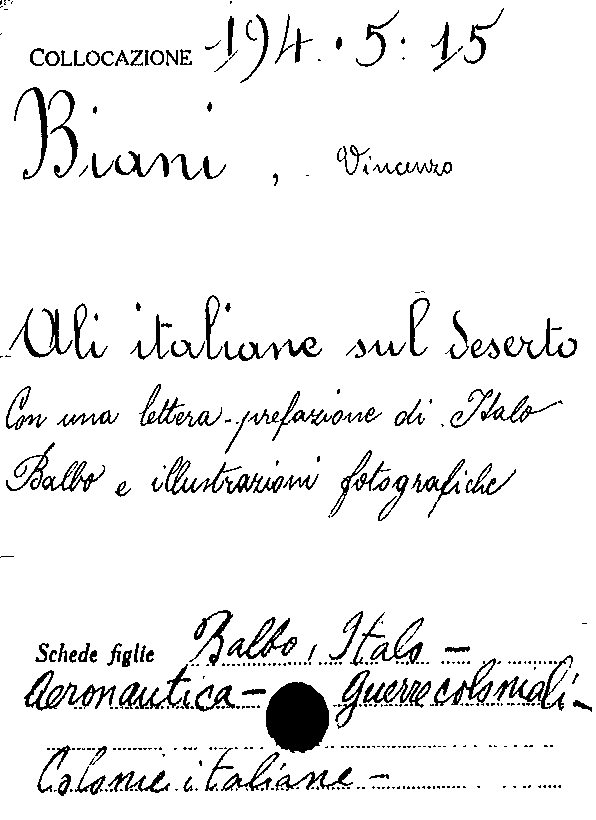 COLLOCAZIONE 194.5:15
Biani, Vincenzo
Ali italiane sul deserto
Con una lettera-prefazione di Italo
Balbo e illustrazioni fotografiche
Schede figlie Balbo, Italo —
Aeronautica — Guerre coloniali —
Colonie italiane —